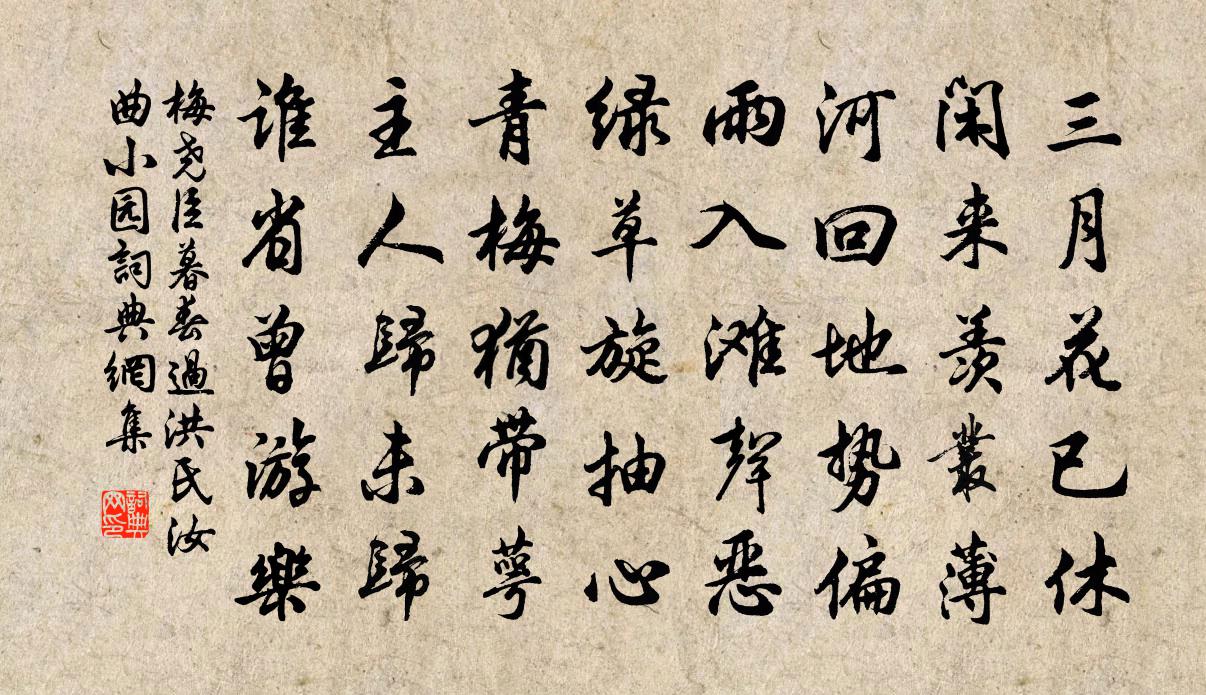 三月花已休
闲来羡叢薄
河回地势偏
雨入滩聲恶
緑草旋抽心
青梅猶带萼
主人歸未歸
谁省曾游樂
梅尧臣暮春過洪氏汝
曲小园詞典網集
詞典
网印